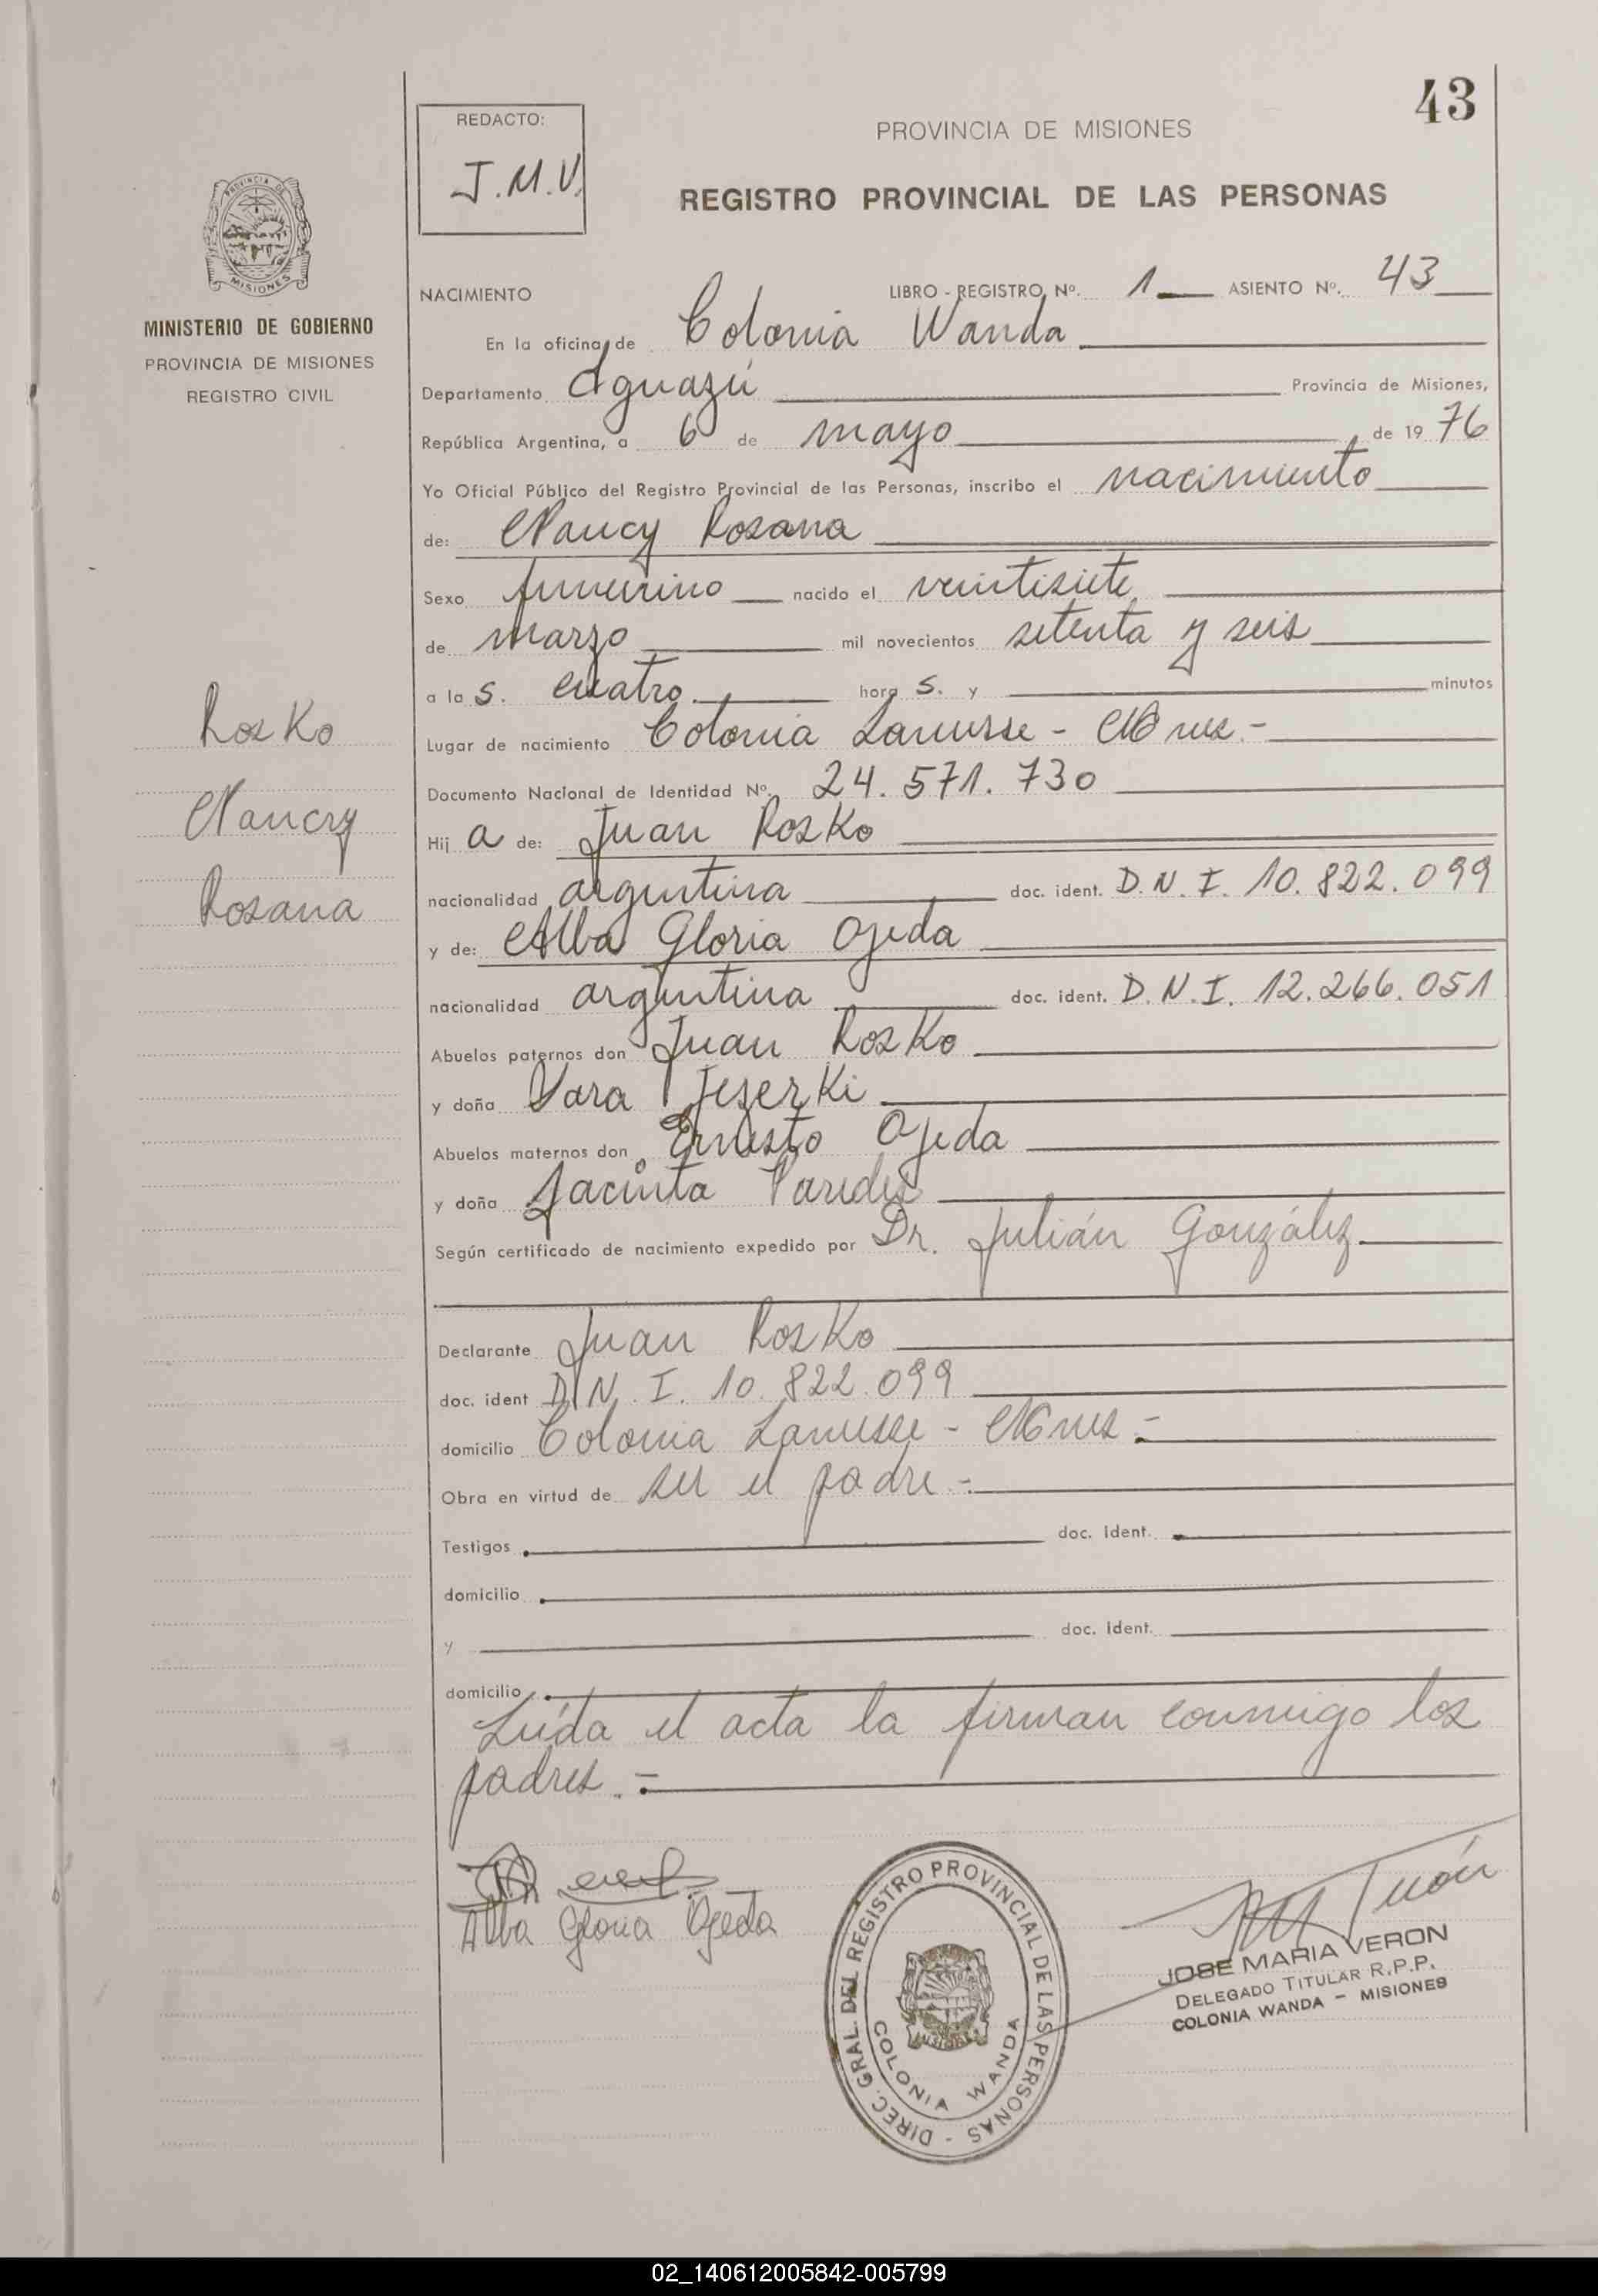 43
REDACTO:
J.M.V.
PROVINCIA DE MISIONES
REGISTRO PROVINCIAL DE LAS PERSONAS
PROVINCIA DE MISIONES
MINISTERIO DE GOBIERNO
PROVINCIA DE MISIONES
REGISTRO CIVIL
NACIMIENTO LIBRO - REGISTRO Nº. 1 ASIENTO Nº. 43
En la oficina de Colonia Wanda
Departamento Iguazú Provincia de Misiones,
República Argentina, a 6 de mayo de 19 76
Yo Oficial Público del Registro Provincial de las Personas, inscribo el nacimiento
de: Nancy Rosana
Sexo femenino nacido el veintisiete
de marzo mil novecientos setenta y seis
a la s. cuatro hora s. y minutos
Lugar de nacimiento Colonia Lanusse - Mnes.-
Documento Nacional de Identidad Nº. 24.571.730
Hij a de: Juan Rosko
nacionalidad argentina doc. ident. D.N.I. 10.822.099
y de: Alba Gloria Ojeda
nacionalidad argentina doc. ident. D.N.I. 12.266.051
Abuelos paternos don Juan Rosko
y doña Vara Jeserki
Abuelos maternos don Ernesto Ojeda
y doña Jacinta Paredes
Según certificado de nacimiento expedido por Dr. Julián González.
Declarante Juan Rosko
doc. ident D.N.I. 10.822.099
domicilio Colonia Lanusse - Mnes.-
Obra en virtud de ser el padre.-
Testigos doc. ident.
domicilio
y doc. ident.
domicilio
Leída el acta la firman conmigo los
padres.-
Rosko
Nancy
Rosana
Alba Gloria Ojeda
DIREC. GRAL. DEL REGISTRO PROVINCIAL DE LAS PERSONAS -
COLONIA WANDA
MISIONES
JOSE MARIA VERON
DELEGADO TITULAR R.P.P.
COLONIA WANDA - MISIONES
02_140612005842-005799